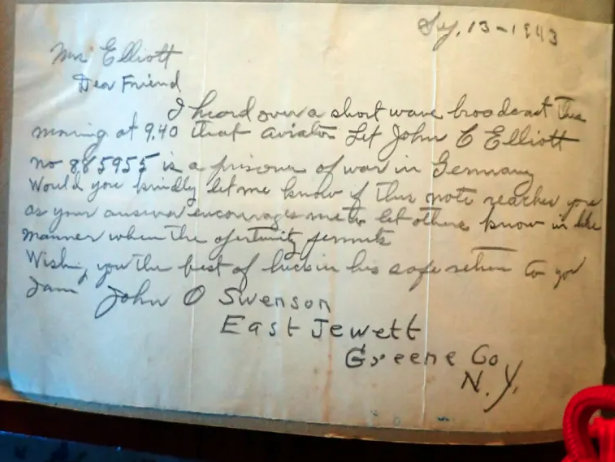 Sep, 13-1943
Mrs Elliott
Dear Friend
I heard over a short wave broadcast this
morning at 9.40 that aviator Lft John C Elliott
no 885955 is a prisoner of war in Germany
Would you kindly let me know if this note reaches you
as your answer encourages me to let others know in like
manner when the ofertunity permits
Wishing you the best of luck in his safe return to you
I am John O Swenson
East Jewett
Greene Co
N.Y.